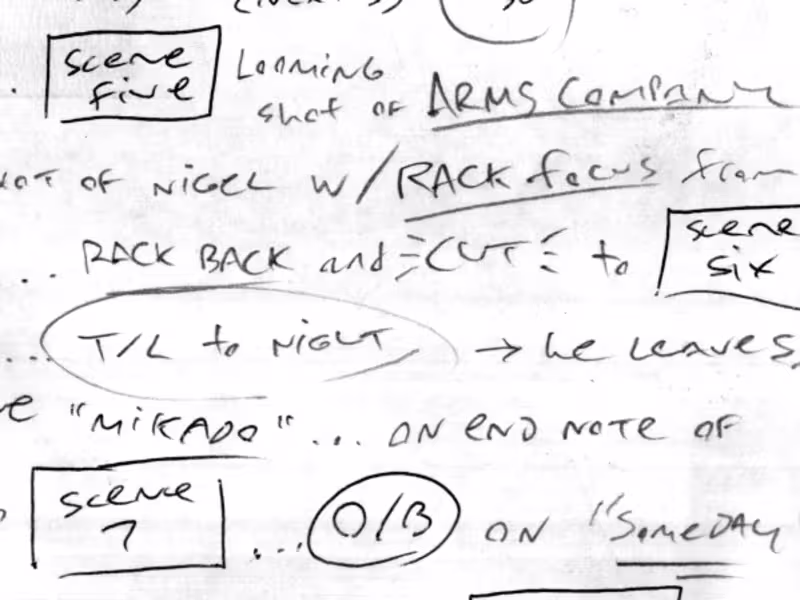 scene five Looming shot of ARMS COMPANY
OF NIGEL W/ RACK focus from
... RACK BACK and CUT to scene six
... T/L to NIGHT → he LEAVES,
"MIKADO" ... ON END NOTE OF
scene 7 ... O/B ON "SOMEDAY